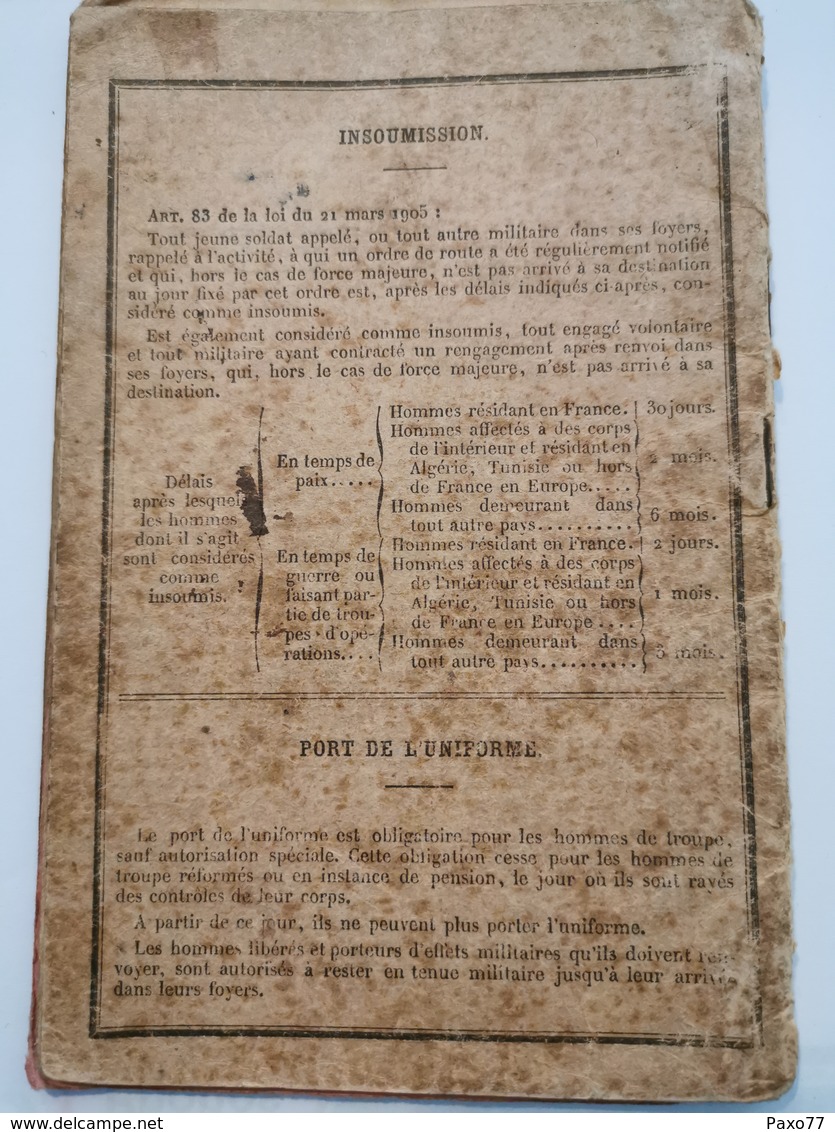 INSOUMISSION.
ART. 83 de la loi du 21 mars 1905 :
Tout jeune soldat appelé, ou tout autre militaire dans ses foyers,
rappelé à l'activité, à qui un ordre de route a été régulièrement notifié
et qui, hors le cas de force majeure, n'est pas arrivé à sa destination
au jour fixé par cet ordre est, après les délais indiqués ci-après, con-
sidéré comme insoumis.
Est également considéré comme insoumis, tout engagé volontaire
et tout militaire ayant contracté un rengagement après renvoi dans
ses foyers, qui, hors le cas de force majeure, n'est pas arrivé à sa
destination.
Délais
après lesquels
les hommes
dont il s'agit
sont considérés
comme
insoumis.
En temps de
paix.....
Hommes résidant en France. 30 jours.
Hommes affectés à des corps
de l'intérieur et résidant en
Algérie, Tunisie ou hors
de France en Europe.....
2 mois.
Hommes demeurant dans
tout autre pays..........
6 mois.
En temps de
guerre ou
faisant par-
tie de trou-
pes d'opé-
rations....
Hommes résidant en France. 2 jours.
Hommes affectés à des corps
de l'intérieur et résidant en
Algérie, Tunisie ou hors
de France en Europe ....
1 mois.
Hommes demeurant dans
tout autre pays..........
3 mois.
PORT DE L'UNIFORME.
Le port de l'uniforme est obligatoire pour les hommes de troupe,
sauf autorisation spéciale. Cette obligation cesse pour les hommes de
troupe réformés ou en instance de pension, le jour où ils sont rayés
des contrôles de leur corps.
A partir de ce jour, ils ne peuvent plus porter l'uniforme.
Les hommes libérés et porteurs d'effets militaires qu'ils doivent ren-
voyer, sont autorisés à rester en tenue militaire jusqu'à leur arrivée
dans leurs foyers.
www.delcampe.net
Paxo77